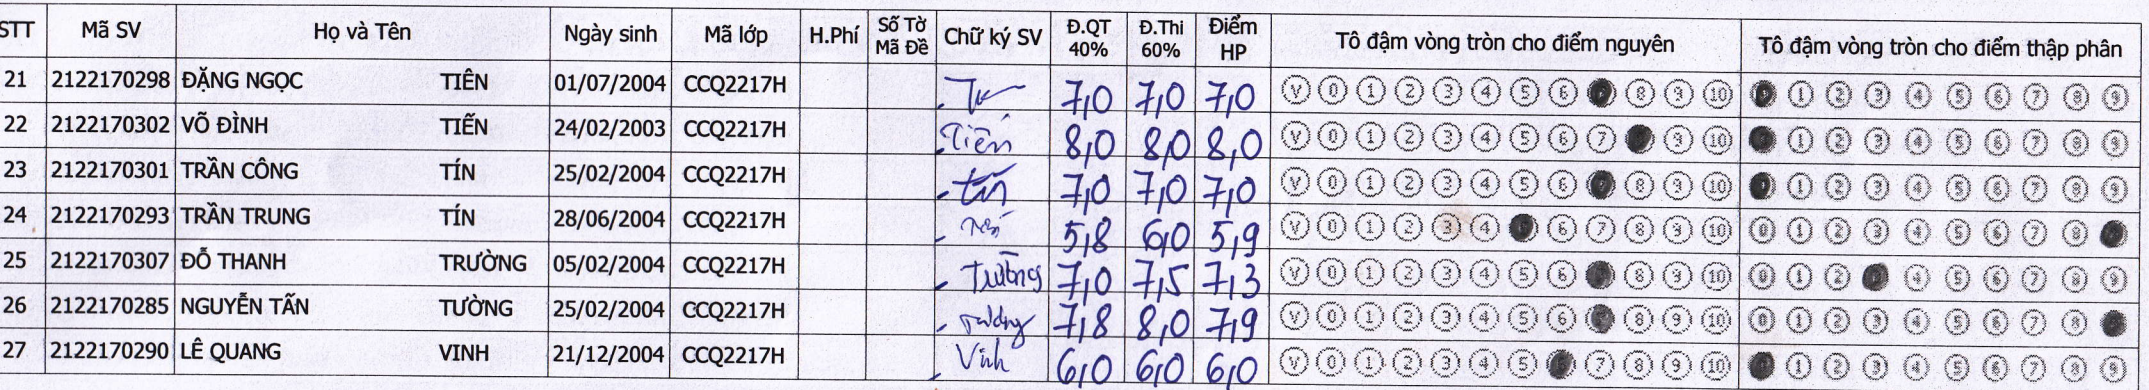 STT Mã SV Họ và Tên Ngày sinh Mã lớp H.Phí Số Tờ Mã Đề Chữ ký SV Đ.QT 40% Đ.Thi 60% Điểm HP Tô đậm vòng tròn cho điểm nguyên Tô đậm vòng tròn cho điểm thập phân
21 2122170298 ĐẶNG NGỌC TIÊN 01/07/2004 CCQ2217H 7,0 7,0 7,0 V 0 1 2 3 4 5 6 8 9 10 1 2 3 4 5 6 7 8 9
22 2122170302 VÕ ĐÌNH TIẾN 24/02/2003 CCQ2217H Tiến 8,0 8,0 8,0 V 0 1 2 3 4 5 6 7 9 10 1 2 3 4 5 6 7 8 9
23 2122170301 TRẦN CÔNG TÍN 25/02/2004 CCQ2217H tín 7,0 7,0 7,0 V 0 1 2 3 4 5 6 8 9 10 1 2 3 4 5 6 7 8 9
24 2122170293 TRẦN TRUNG TÍN 28/06/2004 CCQ2217H 5,8 6,0 5,9 V 0 1 2 3 4 6 7 8 9 10 0 1 2 3 4 5 6 7 8
25 2122170307 ĐỖ THANH TRƯỜNG 05/02/2004 CCQ2217H Trường 7,0 7,5 7,3 V 0 1 2 3 4 5 6 8 9 10 0 1 2 4 5 6 7 8 9
26 2122170285 NGUYỄN TẤN TƯỜNG 25/02/2004 CCQ2217H Tường 7,8 8,0 7,9 V 0 1 2 3 4 5 6 8 9 10 0 1 2 3 4 5 6 7 8
27 2122170290 LÊ QUANG VINH 21/12/2004 CCQ2217H Vinh 6,0 6,0 6,0 V 0 1 2 3 4 5 7 8 9 10 1 2 3 4 5 6 7 8 9